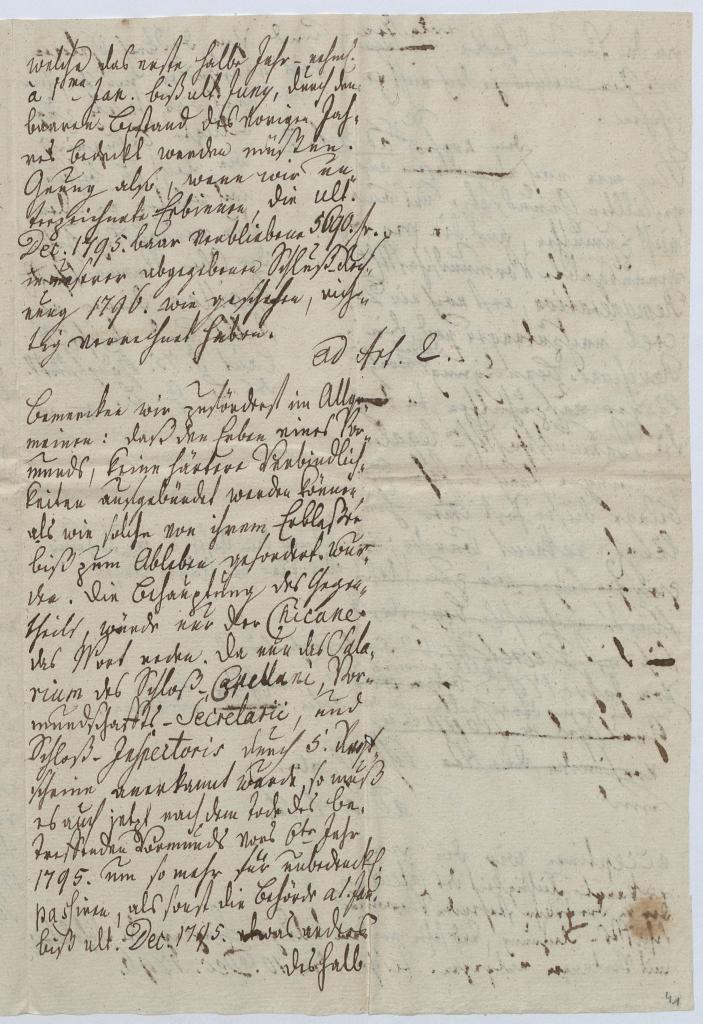 welche das erste halbe Jahr – nehml.
à 1ma Jan. biß ult. Juny, durch den
baaren Bestand des vorigen Jah-
res bedeckt werden müßten.
Genug also, wenn wir un
terzeichnete Erbinnen, die ult.
Dec. 1795. baar verbliebene 5690. fr.
in unserer abgegebenen Schluß Rech-
nung 1796. wie geschehen, rich-
tig verrechnet haben.
ad Art. 2.
Bemercken wir zuförderst im Allge-
meinen: daß den Erben eines Vor-
munds, keine härtere Verbindlich-
keiten aufgebürdet werden können,
als wie solche von ihrem Erblaßer
biß zum Ableben gefordert wur-
den. Die Behauptung des Gegen-
theils, würde nur der Chicane
das Wort reden. Da nun das Sala-
rium des Schloß-Castellani, Vor-
mundschaffts-Secretarii, und
Schloß-Inspectoris durch 5. Rev.
scheine anerkannt wurde, so muß
es auch jetzt nach dem Tode des be-
treffenden Vormunds vors 6te Jahr
1795. um so mehr für unbedenckl.
passiren, als sonst die Behörde a 1. Jan.
biß ult. Dec. 1795. etwas anders
deshalb
41